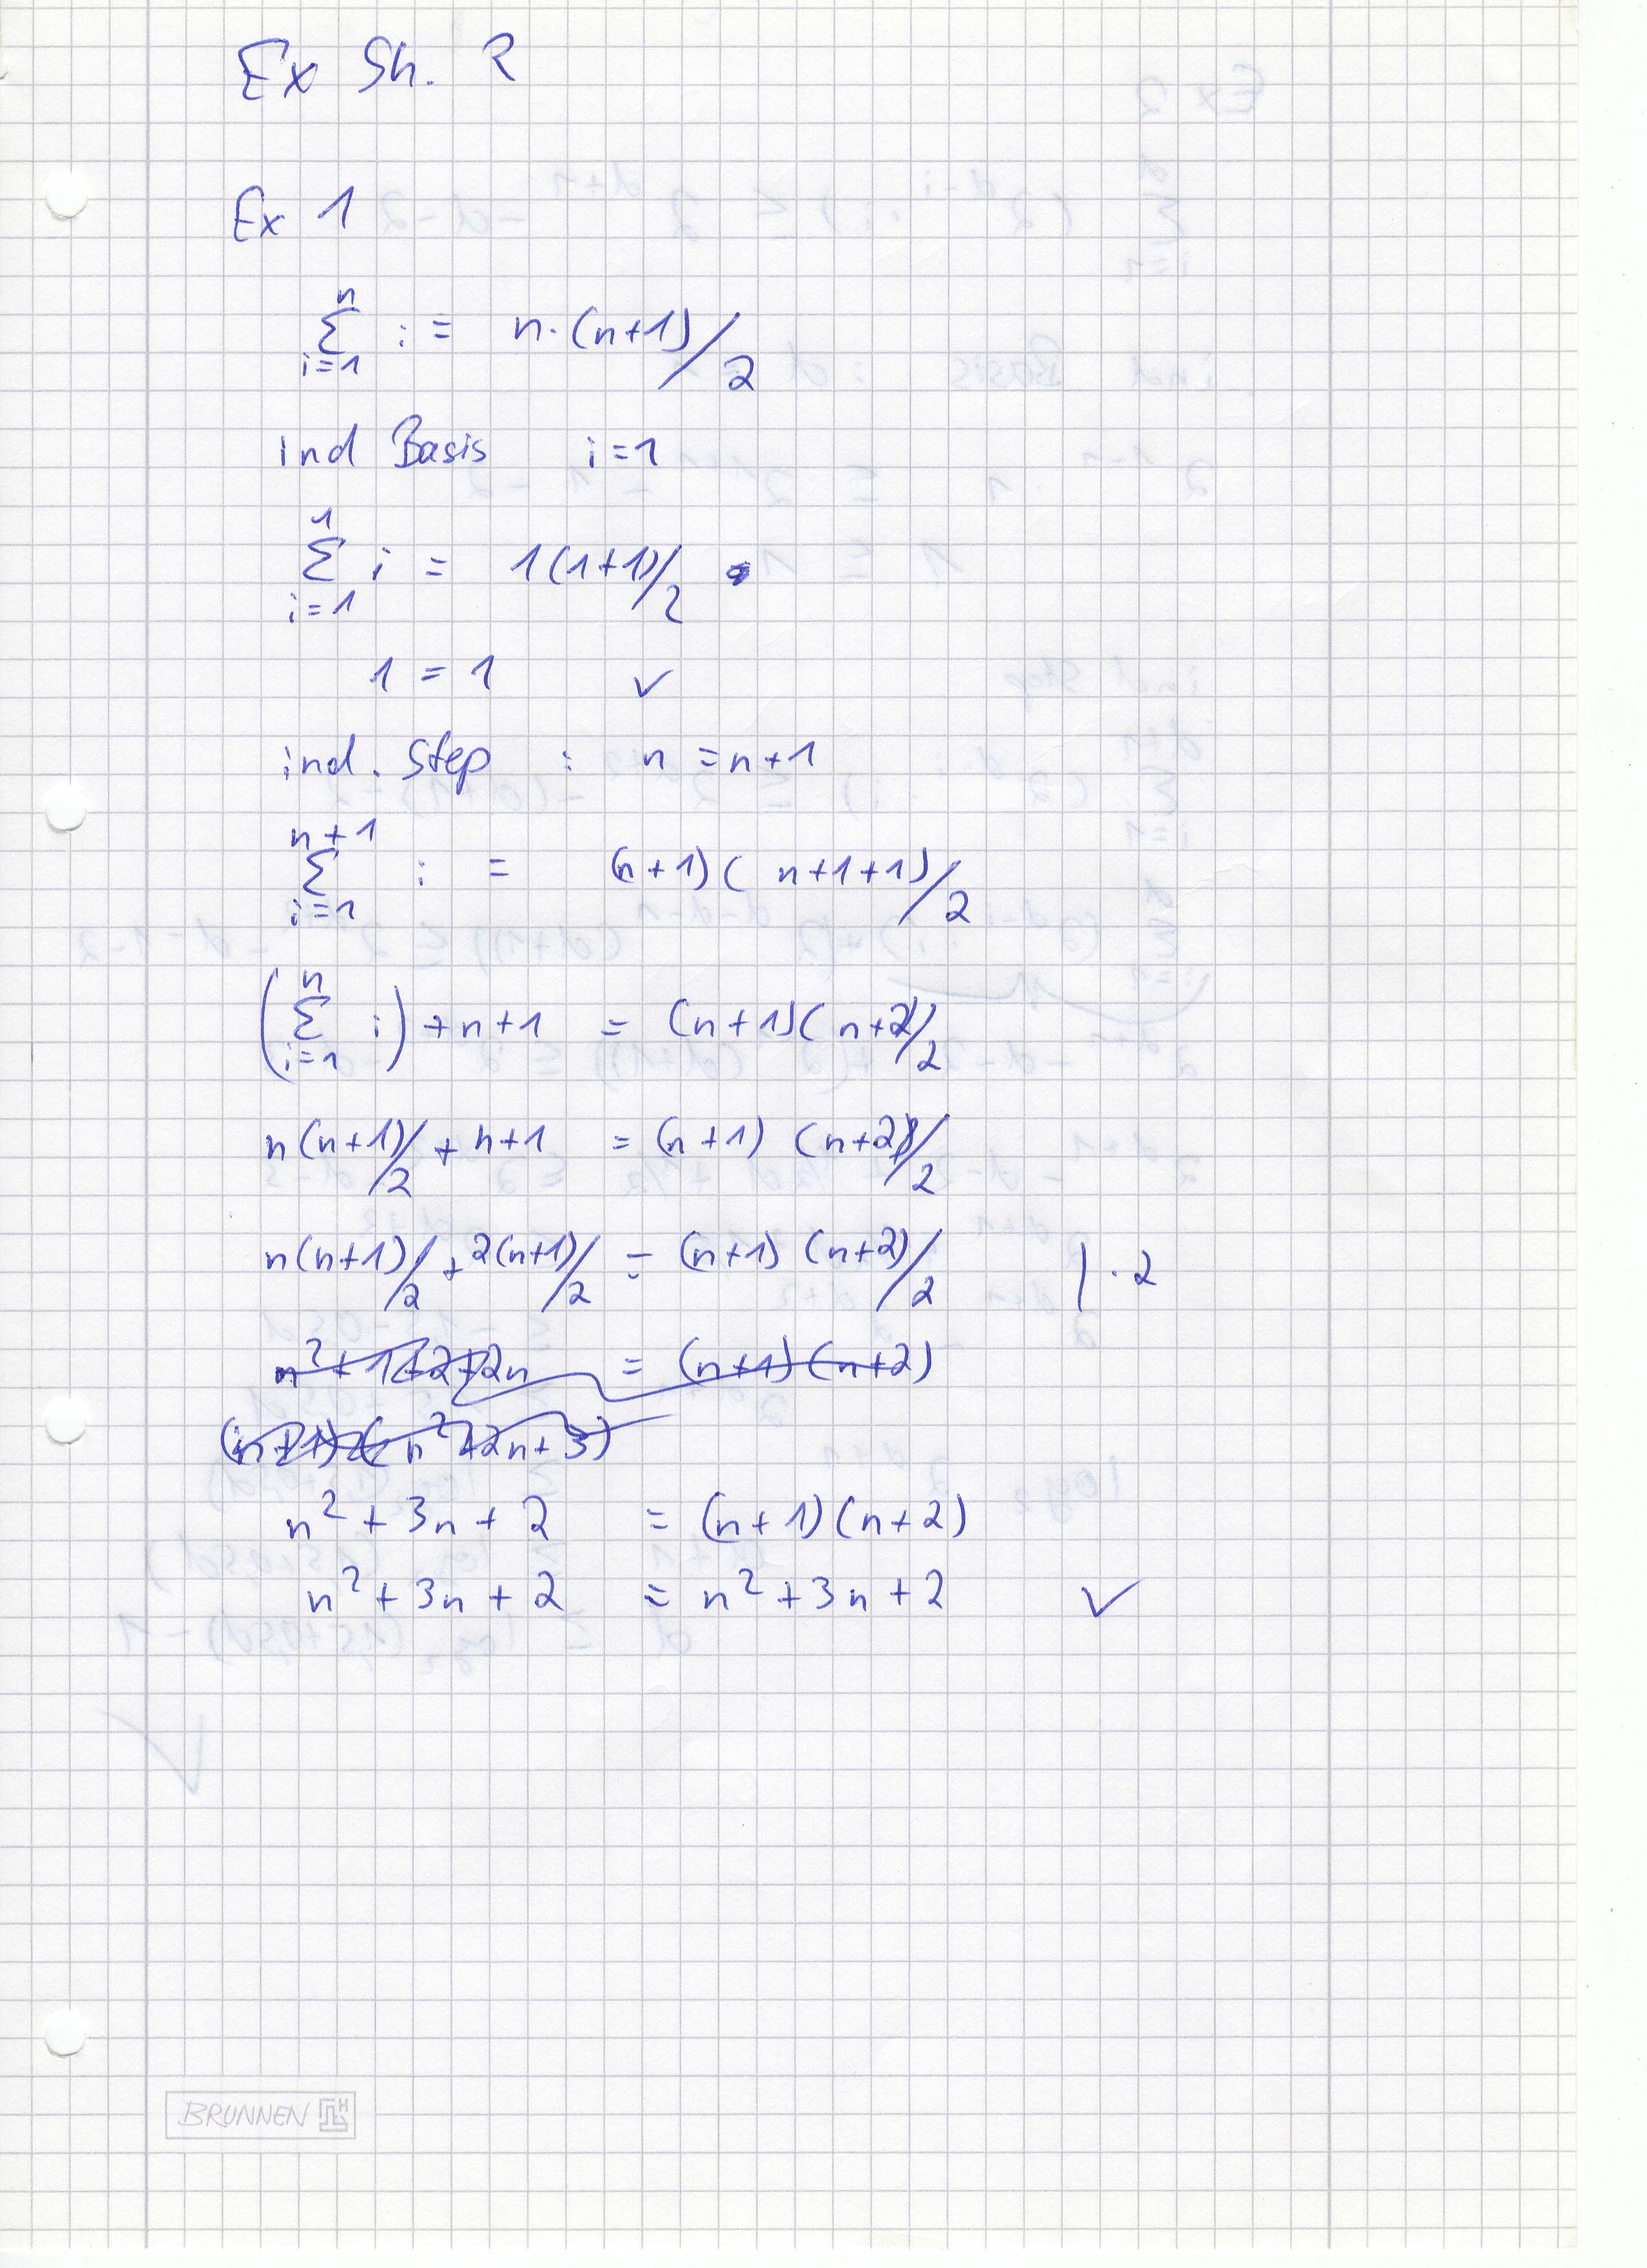 Ex Sh. 2
Ex 1
n
Σ i = n·(n+1)/2
i=1
ind Basis i=1
1
Σ i = 1(1+1)/2
i=1
1 = 1 ✓
ind. Step : n = n+1
n+1
Σ i = (n+1)( n+1+1)/2
i=1
n
(Σ i) + n+1 = (n+1)(n+2)/2
i=1
n(n+1)/2 + n+1 = (n+1) (n+2)/2
n(n+1)/2 + 2(n+1)/2 = (n+1) (n+2)/2 | · 2
n² + 1 + 2 + 2n = (n+1) (n+2)
n² + 3n + 2 = (n+1)(n+2)
n² + 3n + 2 = n² + 3n + 2 ✓
BRUNNEN